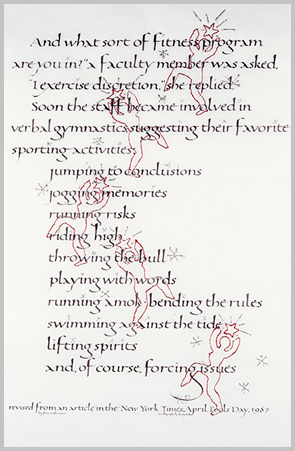 And what sort of fitness program
are you in?" a faculty member was asked.
"I exercise discretion," she replied.
Soon the staff became involved in
verbal gymnastics suggesting their favorite
sporting activities:
jumping to conclusions
jogging memories
running risks
riding high
throwing the bull
playing with words
running amok · bending the rules
swimming against the tide
lifting spirits
and, of course, forcing issues
revised from an article in the New York Times, April Fools Day, 1987